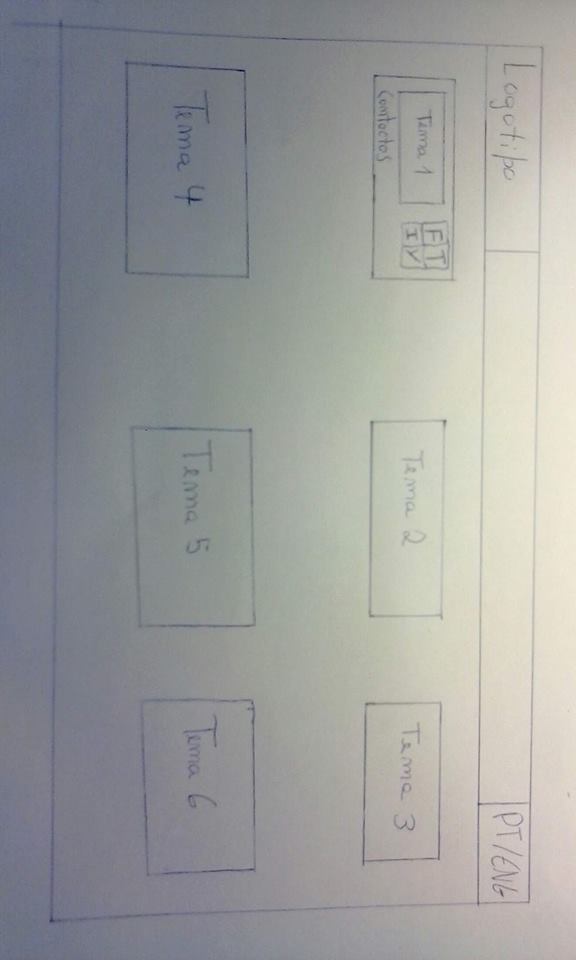 Logotipo
PT/ENG
Tema 1
F T
I Y
Contactos
Tema 2
Tema 3
Tema 4
Tema 5
Tema 6